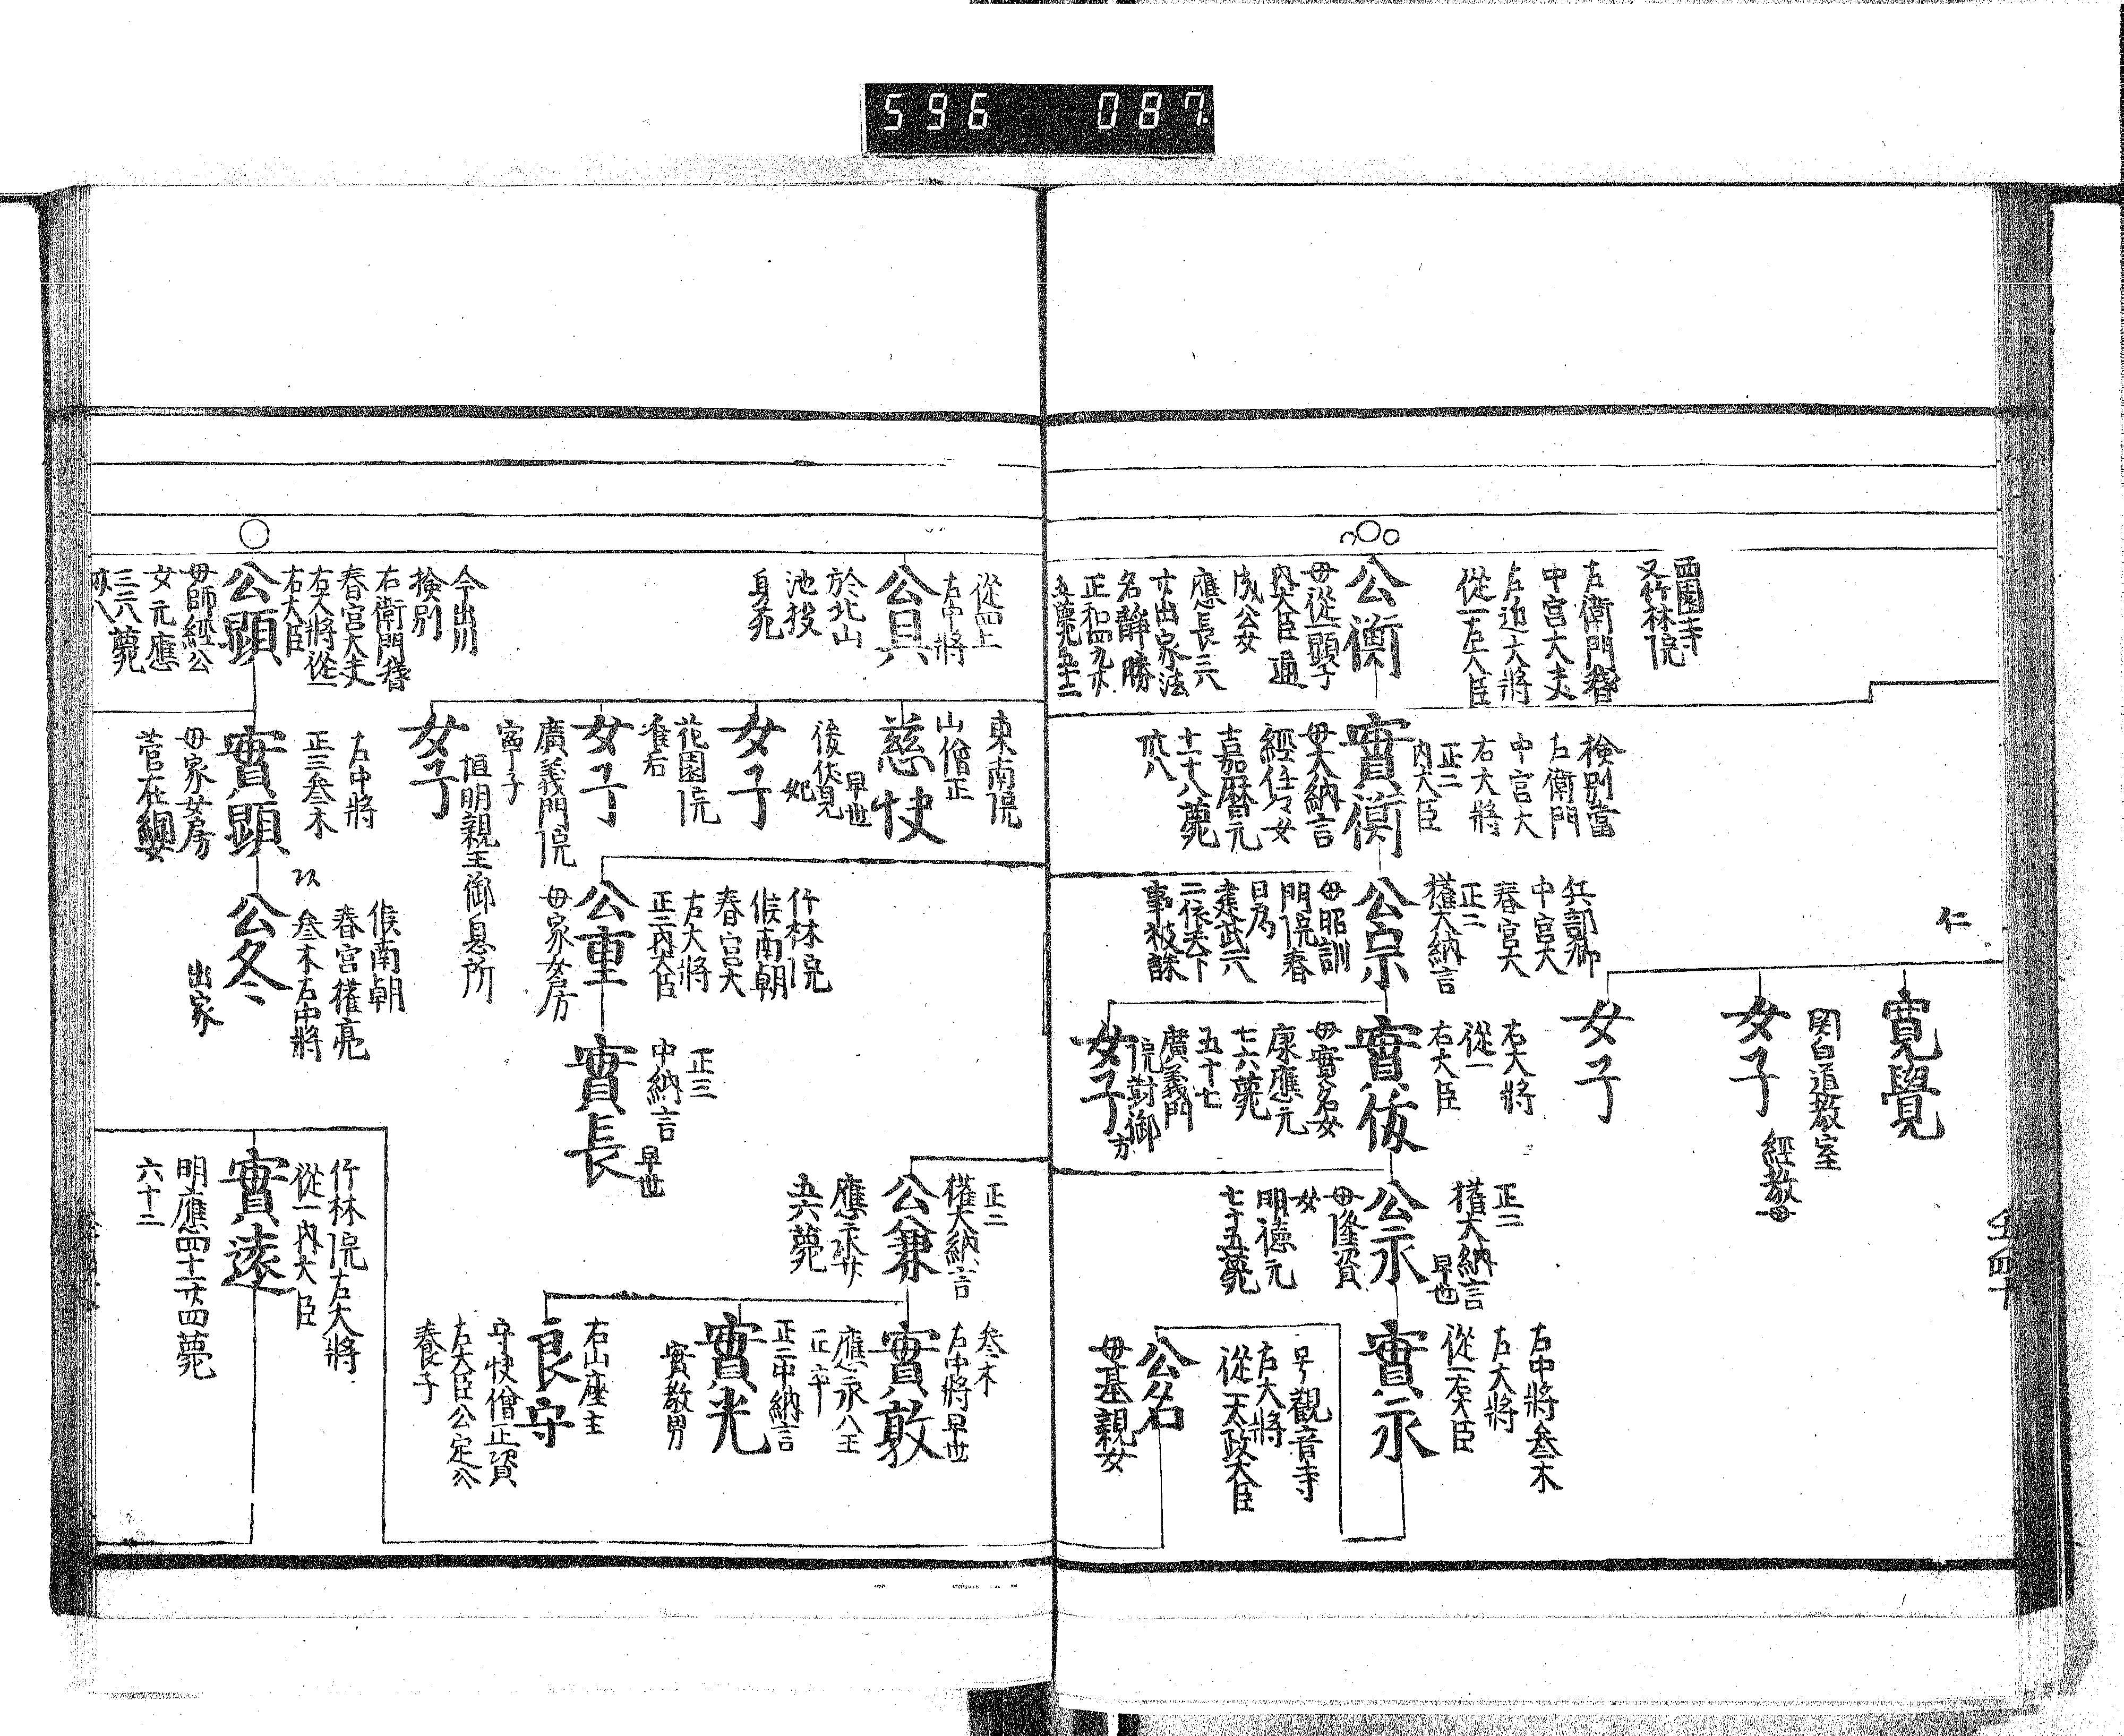 596 087.
西園寺
又竹林院
左衛門督
中宮大夫
左近大将
從一左大臣
公衡
母從一顕子
内大臣通
成公女
應長三八
廿出家法
名静勝
正和四九廿
五薨五十二
檢別當
左衛門
中宮大
右大将
正二
内大臣
實衡
母大納言
經任々女
嘉暦元
十一十八薨
卅八
兵部卿
中宮大
春宮大
正二
權大納言
公宗
母昭訓
門院春
日局
建武二六
二依天下
事被誅
仁
寛覺
関白道教室
女子
經教母
女子
右大将
從一
右大臣
實俊
母實名女
康應元
七六薨
五十七
女子
廣義門
院對御
方
正二
權大納言
早世
公永
母隆資
女
明徳元
七十五薨
右中将叅木
右大将
從一右大臣
實永
号觀音寺
右大将
從一太政大臣
公名
母基親女
左四十
從四上
左中将
公具
於北山
池投
身死
東南院
山僧正
慈快
早世
女子
後伏見
妃
花園院
准后
女子
廣義門院
寧子
女子
恒明親王御息所
竹林院
候南朝
春宮大
右大将
正二内大臣
公重
母家女房
正三
中納言
早世
實長
正二
權大納言
公兼
應永廿
五六薨
叅木
右中将早世
實敦
應永八王
正六卒
正二中納言
實光
實敎男
右山座主
良守
守快僧正資
左大臣公定公
養子
今出川
檢別
右衛門督
春宮大夫
右大将從一
右大臣
公顕
母師經公
女元應
三二八薨
卅八
右中将
正三叅木
實顕
母家女房
菅在綱女
候南朝
春宮權亮
叅木右中将
公冬
出家
竹林院右大将
從一内大臣
實遠
明應四十一廿四薨
六十二